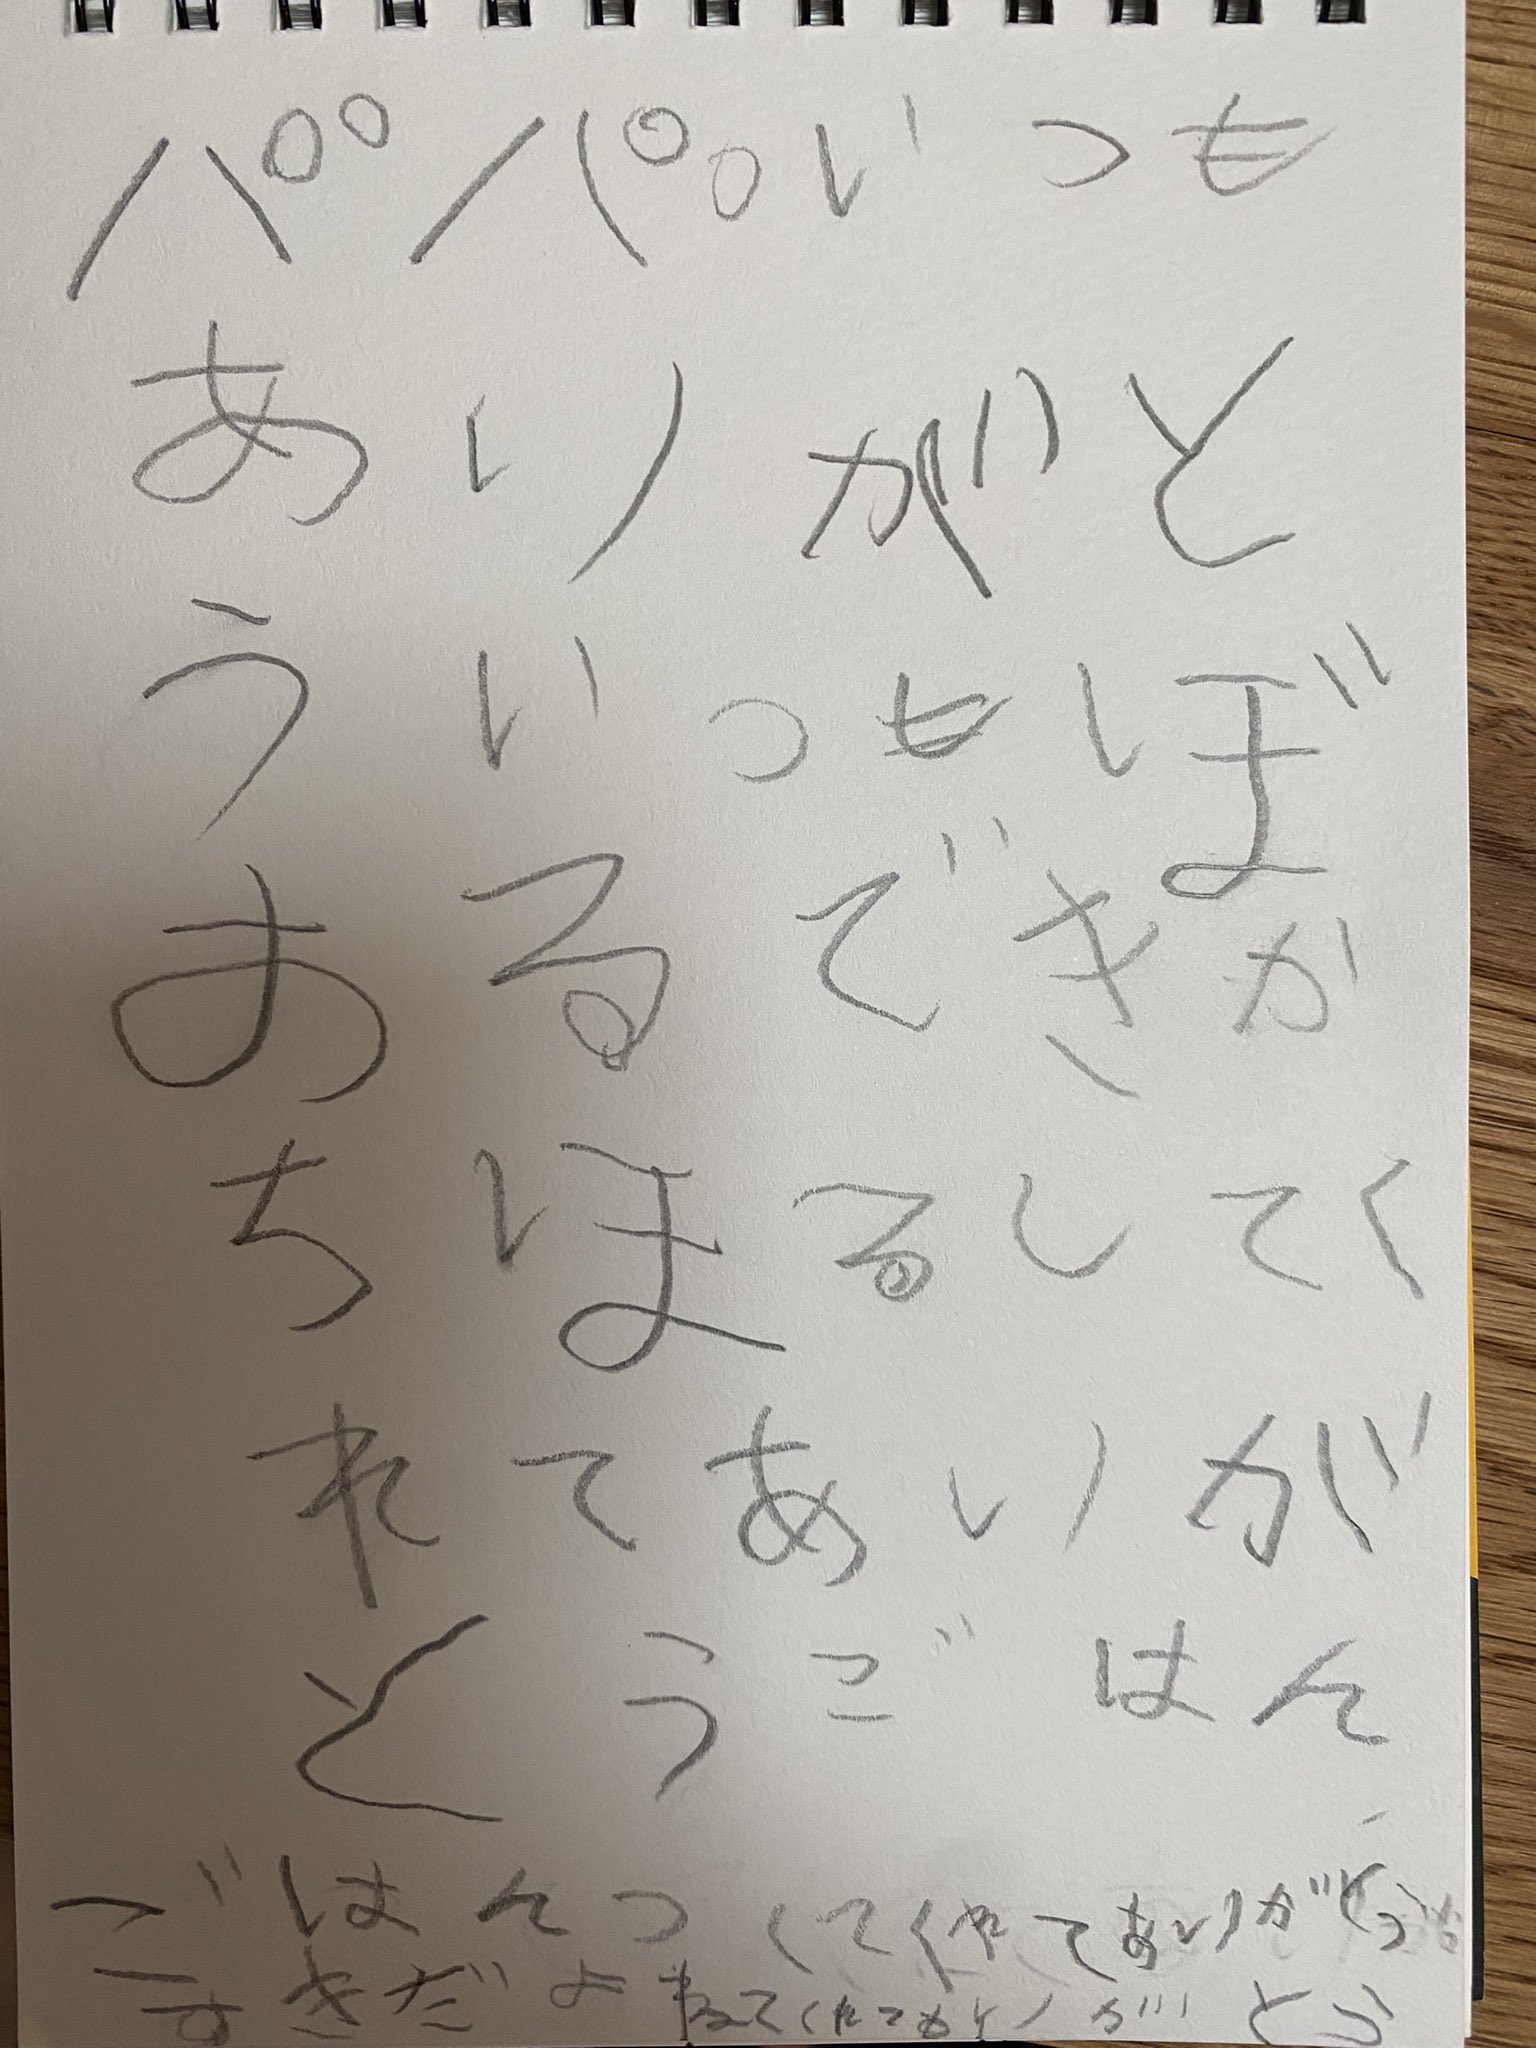 パパいつも
ありがと
ういつもぼ
おるできか
ちぼるしてく
れてありが
とうごはん
ごはんつくてくれてありがとう
すきだよねてくれてありがとう